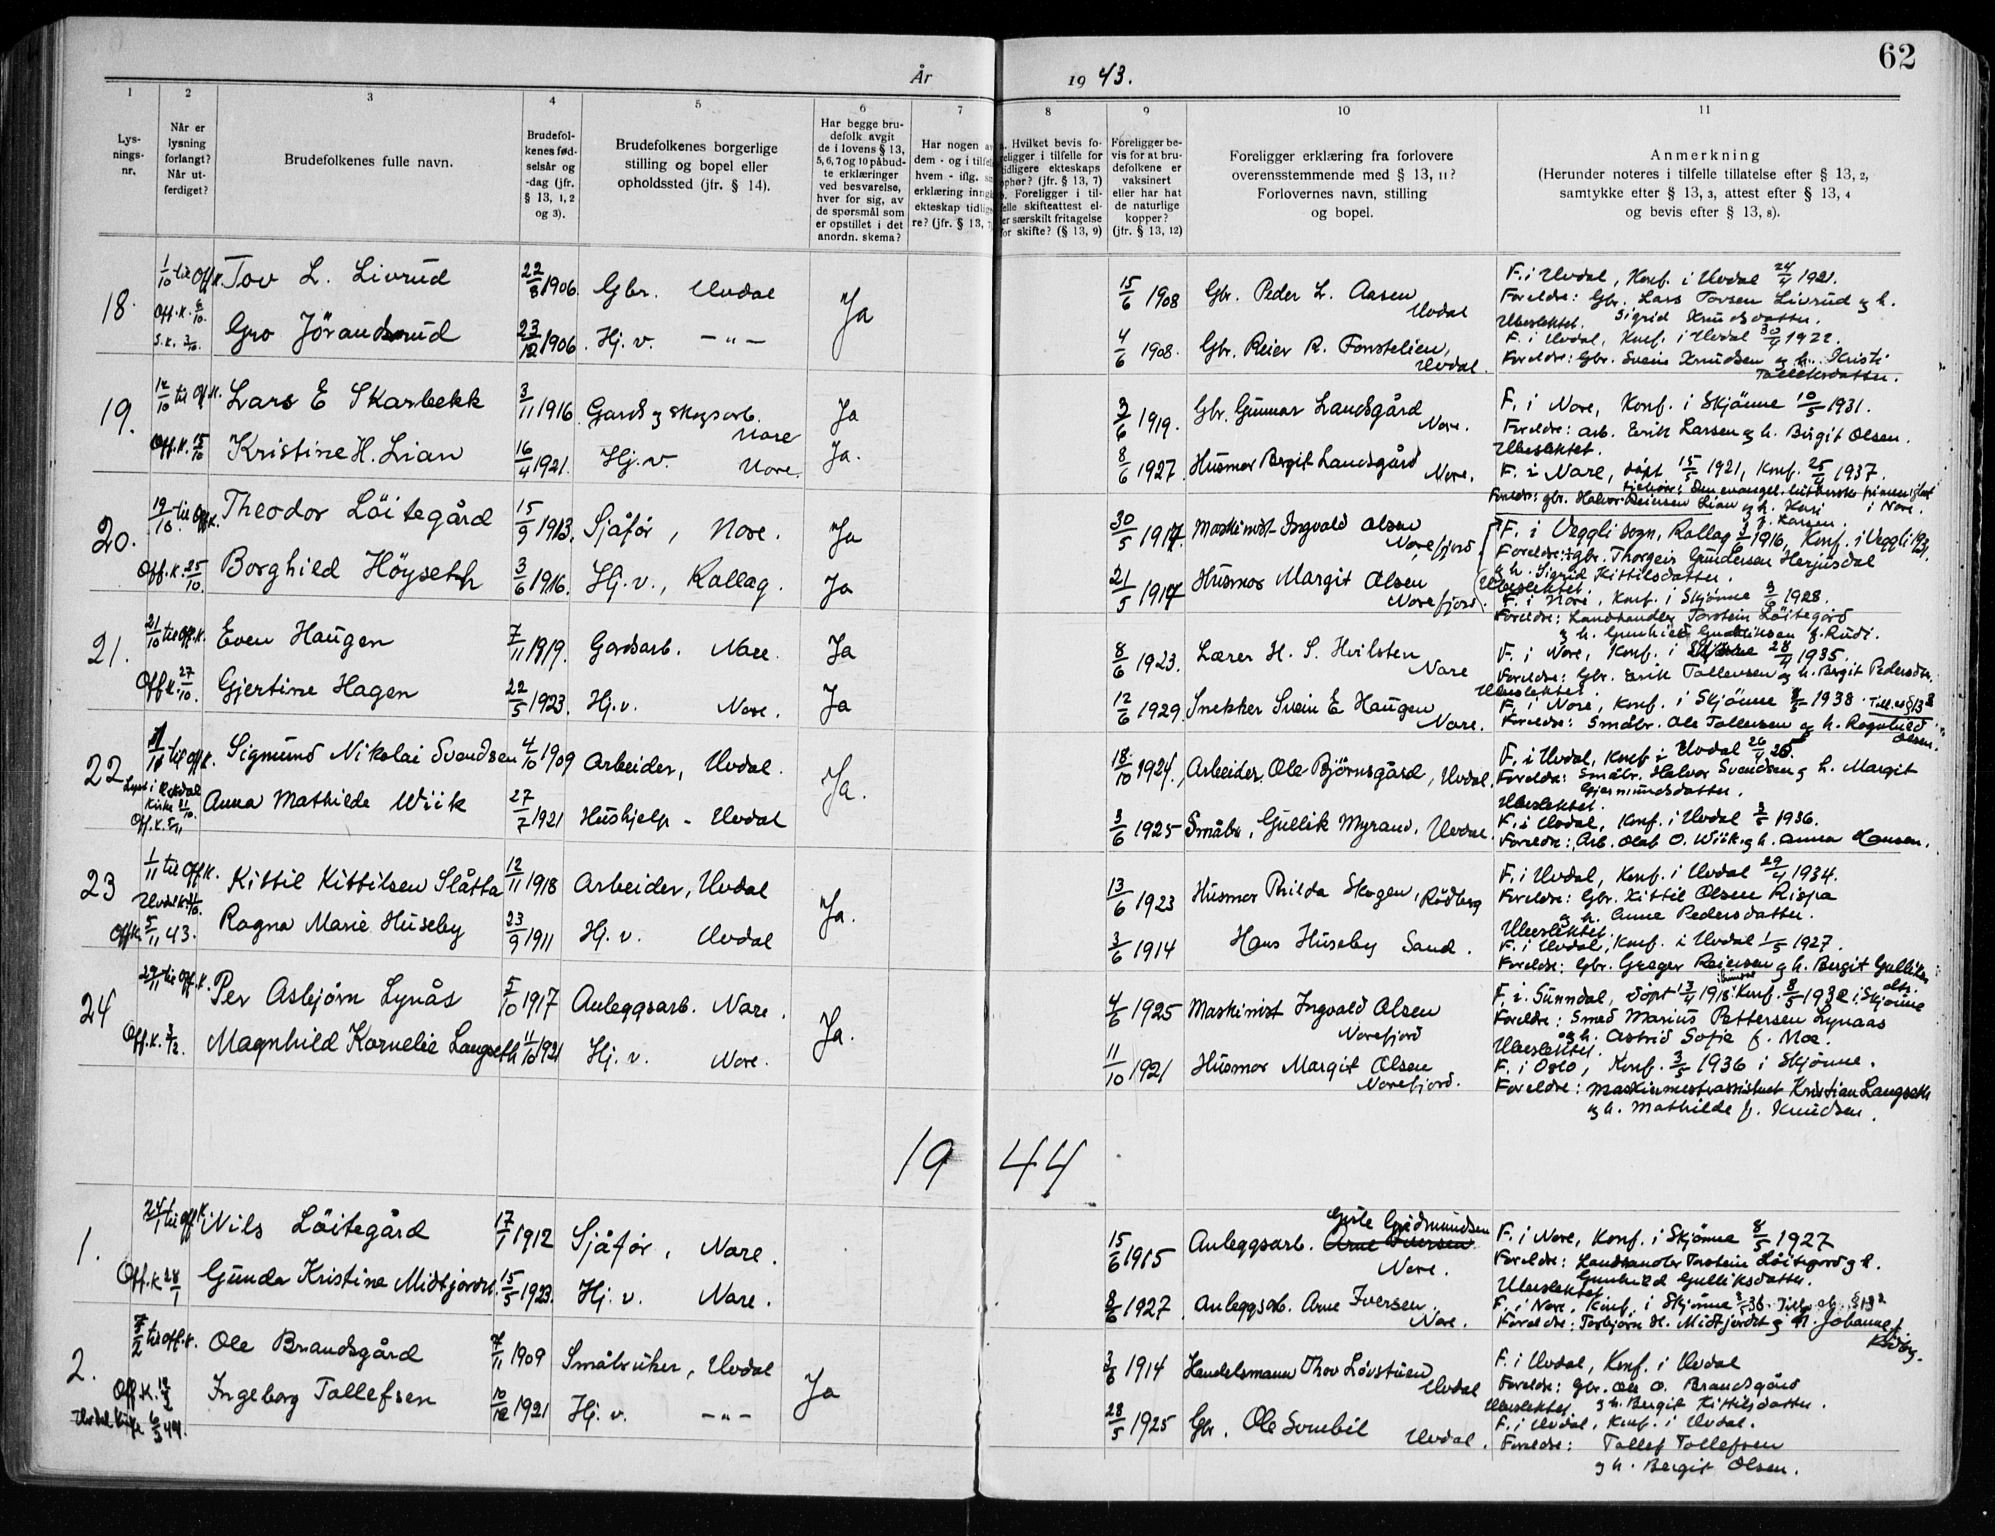 62
År 1943.
1 2 3 4 5 6 7 8 9 10 11
Lysnings-nr.
Når er lysning forlangt? Når utferdiget?
Brudefolkenes fulle navn.
Brudefolkenes fødselsår og -dag (jfr. § 13, 1, 2 og 3).
Brudefolkenes borgerlige stilling og bopel eller opholdssted (jfr. § 14).
Har begge brudefolk avgit de i lovens § 13, 5, 6, 7 og 10 påbudte erklæringer ved besvarelse, hver for sig, av de spørsmål som er opstillet i det anordn. skema?
Har nogen av dem - og i tilfelle hvem - iflg. erklæring inngått ekteskap tidligere? (jfr. § 13, 7)
Hvilket bevis foreligger i tilfelle for tidligere ekteskaps ophør? (jfr. § 13, 7) b. Foreligger i tilfelle skifteattest eller særskilt fritagelse for skifte? (§ 13, 9)
Foreligger bevis for at brudefolkene er vaksinert eller har hat de naturlige kopper? (jfr. § 13, 12)
Foreligger erklæring fra forlovere overensstemmende med § 13, 11? Forlovernes navn, stilling og bopel.
Anmerkning (Herunder noteres i tilfelle tillatelse efter § 13, 2, samtykke efter § 13, 3, attest efter § 13, 4 og bevis efter § 13, 8).
18. 1/10 til Off.K. Tov L. Livrud 22/8 1906. Gbr. Uvdal Ja 15/6 1908 Gbr. Peder L. Aasen Uvdal
F. i Uvdal, Konf. i Uvdal 24/4 1921.
Foreldre: Gbr. Lars Torsen Livrud og h. Sigrid Knudsdatter.
Ubeslektet.
Off.K. 6/10. S.K. 3/10. Gro Jörandsrud 23/12 1906. Hj. v. —"— 4/6 1908. Gbr. Reier R. Fonstelien, Uvdal.
F. i Uvdal, Konf. i Uvdal 30/4 1922.
Foreldre: Gbr. Svein Knudsen og h. Kristi Tollefsdatter.
19. 12/10 til Off.K. Lars E Skarbekk 3/11 1916. Gards og skogsarb. Nore Ja 3/6 1919. Gbr. Gunnar Landsgård Nore.
F. i Nore, Konf. i Skjönne 10/5 1931.
Foreldre: arb. Erik Larsen og h. Birgit Olsen.
Ubeslektet.
Off.K. 15/10 Kristine H. Lian 16/4 1921. Hj. v. Nore. Ja. 8/6 1927 Husmor Bergit Landsgård Nore.
F. i Nore, döpt 15/5 1921, Konf. 25/4 1937.
Foreldre: gbr. Halvor Reiersen Lian og h. Kari f. Karsen.
20. 19/10 til Off.K. Theodor Löitegård 15/9 1913. Sjåför, Nore. Ja 30/5 1917. Maskinist Ingvald Olsen Norefjord
F. i Veggli sogn, Rollag 3/6 1916, Konf. i Veggli 1931.
Foreldre: gbr. Thorgeir Gundersen Herjusdal og h. Sigrid Kittilsdatter.
Ubeslektet.
Off.K. 25/10. Borghild Höyseth 3/6 1916. Hj. v., Rollag. Ja 21/5 1917 Husmor Margit Olsen Norefjord.
F. i Nore, Konf. i Skjönne 3/6 1928.
Foreldre: Landhandler Torstein Löitegård og h. Gunhild Gulliksen f. Rudi.
21. 21/10 til Off.K. Even Haugen 7/11 1919. Gardsarb. Nore. Ja 8/6 1923. Lærer H. S. Hvilsten Nore
F. i Nore, Konf. i Skjönne 28/4 1935.
Foreldre: Gbr. Erik Tollevsen og h. Bergit Pedersdtr.
Ubeslektet.
Off.K. 27/10. Gjertine Hagen 22/5 1923. Hj. v. Nore. Ja 12/6 1929 Snekker Svein E Haugen Nore.
F. i Nore, Konf. i Skjönne 8/5 1938. Till. eft. § 13 2.
Foreldre: Småbr. Ole Tollevsen og h. Ragnhild Olsen.
22. til Off.K. Sigmund Nikolai Svendsen 4/10 1909 Arbeider, Uvdal. Ja. 18/10 1924. Arbeider, Ole Björnsgård, Uvdal.
F. i Uvdal, Konf. i Uvdal 26/4 25
Foreldre: Småbr. Halvor Svendsen og h. Margit Gjermundsdatter.
Ubeslektet.
Kirke 31/10. Off.K. 5/11 Anna Mathilde Wiik 27/7 1921 Hushjelp - Uvdal 3/6 1925 Småbr., Gullik Myrand, Uvdal.
F. i Uvdal, Konf. i Uvdal 3/5 1936.
Foreldre: Arb. Olaf O. Wiik og h. Anna Hansen.
23 1/11 til Off.K. Kittil Kittilsen Slåtta 12/11 1918 Arbeider, Uvdal Ja. 13/6 1923 Husmor Thilda Skogen, Rödberg
F. i Uvdal, Konf. i Uvdal 29/4 1934.
Foreldre: Gbr. Kittil Olsen Rispa og h. Anne Pedersdatter.
Ubeslektet.
Uvdal K. 31/10. Off.K. 5/11 43. Ragna Marie Huseby 23/9 1911 Hj. v. Uvdal 3/6 1914 Hans Huseby Sand.
F. i Uvdal, Konf. i Uvdal 1/5 1927.
Foreldre: Gbr. Greger Reiersen og h. Bergit Gulliksdtr.
24 29/11 til Off.K. Per Asbjørn Lynås 5/10 1917 Anleggsarb. Nore. Ja. 4/6 1925 Maskinist Ingvald Olsen Norefjord
F. i Sunndal, döpt 13/4 1918 Konf. 8/5 1932 i Skjönne
Foreldre: Smed Marius Pettersen Lynaas og h. Astrid Sofie f. Moe.
Ubeslektet.
Off.K. 3/12. Magnhild Kornelie Langseth 11/10 1921 Hj. v. Nore. 11/10 1921 Husmor Margit Olsen Norefjord.
F. i Oslo, Konf. 3/5 1936 i Skjönne.
Foreldre: Maskinmesterassistent Kristian Langseth og h. Mathilde f. Knudsen.
1944
1. 24/1 til Off.K. Nils Löitegård 17/1 1912 Sjåför, Nore. 15/6 1915 Anleggsarb. Arne Iversen Gisle Gudmundsen Nore.
F. i Nore, Konf. i Skjönne 8/5 1927
Foreldre: Landhandler Torstein Löitegård og h. Gunhild Gulliksdatter.
Ubeslektet
Off.K. 28/1 Gunda Kristine Midtjordet. 15/5 1923. Hj. v. Nore. 8/6 1927 Anleggsarb. Arne Iversen Nore.
F. i Nore, Konf. i Skjönne 38. Till. eft. § 13 2
Foreldre: Torbjörn H. Midtjordet og h. Johanne f.
2. 7/2 til Off.K. Ole Brandsgård 7/11 1909 Småbruker, Uvdal Ja 3/6 1914 Handelsmann Thov Lövstuen Uvdal
F. i Uvdal, Konf. i Uvdal
Foreldre: Gbr. Ole O. Brandsgård og h. Bergit Kittilsdatter.
Ubeslektet
Off.K. Uvdal Kirke 44. Ingeborg Tollefsen 10/12 1921 Hj. v. —"— 28/5 1925 Gbr. Ole Sonebil Uvdal.
F. i Uvdal, Konf. i Uvdal.
Foreldre: Tollef Tollefsen og h. Bergit Olsen.